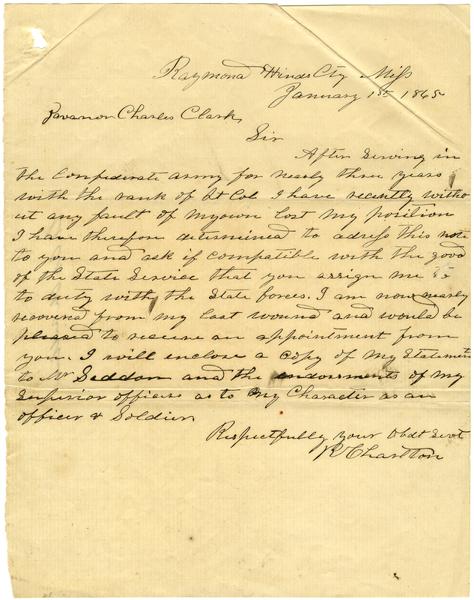 Raymond Hinds Cty Miss
January 1st 1865
Govanor Charles Clark,
Sir
After Serving in
the Confederate army for nearly three years
with the rank of Lt Col I have recently witho
ut any fault of myown lost my position
I have therefore determined to adress this note
to you and ask if compatible with the good
of the State Service that you assign me
to duty with the State forces. I am now nearly
recovered from my last wound and would be
pleased to receive an appointment from
you. I will enclose a copy of my Statement
to Mr Seddon and the endorsments of my
Superior officers as to my Character as an
officer & Soldier
Respectfully your Obdt Servt
R Charlton